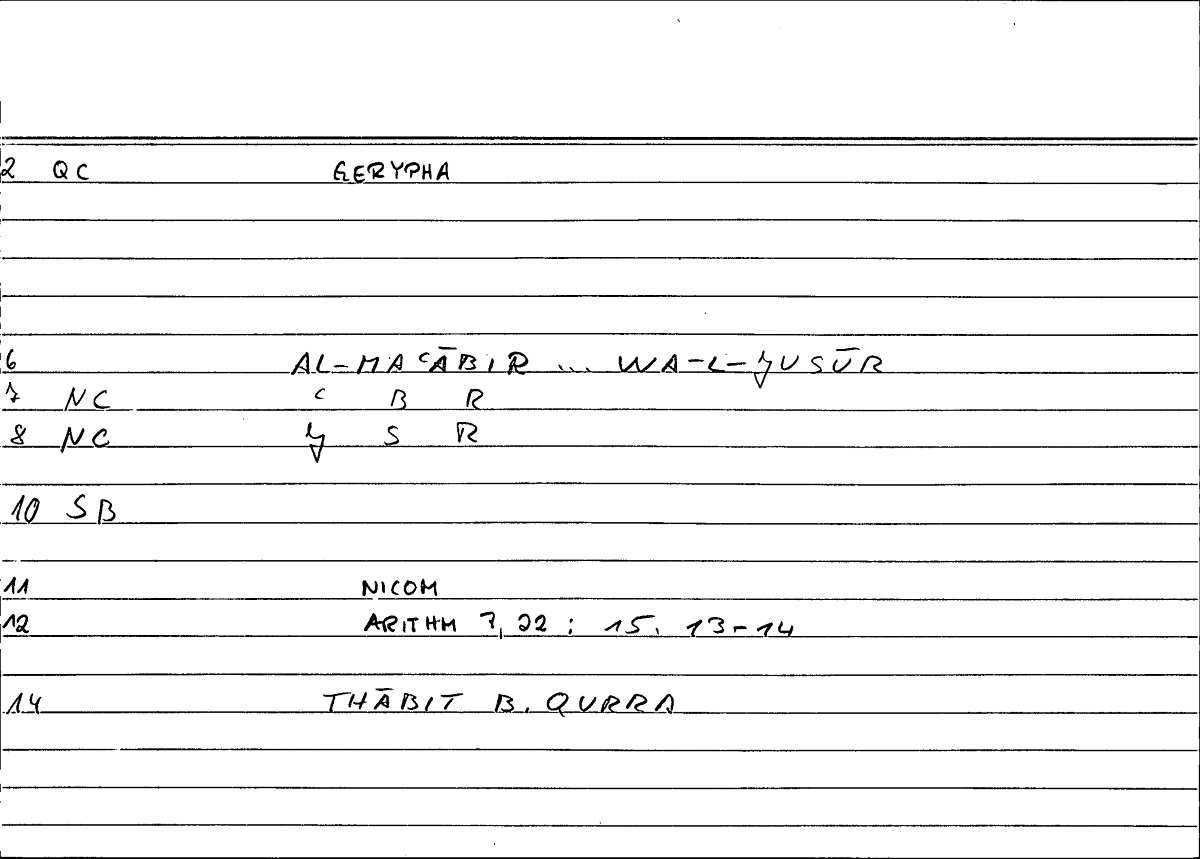 2 QC GERYPHA
6 AL-MAʿĀBIR ... WA-L-ǦUSŪR
7 NC ʿ B R
8 NC Ǧ S R
10 SB
11 NICOM
12 ARITHM 7,22 : 15. 13-14
14 THĀBIT B. QURRA